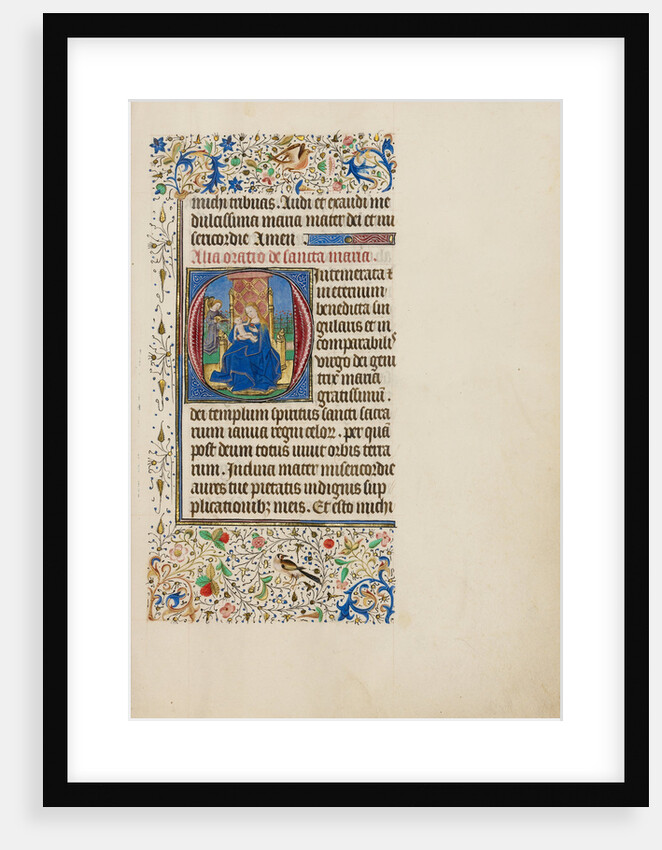 michi tribuas. Audi et exaudi me
dulcissima maria mater dei et mi
sericordie Amen
Alia oratio de sancta maria.
O Intemerata ⁊
in eternum
benedicta sin
gularis et in
comparabilis
virgo dei geni
trix maria
gratissimū.
dei templum spiritus sancti sacra
rium ianua regni celoꝝ. per quā
post deum totus uiuit orbis terra
rum. Inclina mater misericordie
aures tue pietatis indignis sup
plicationibꝫ meis. Et esto michi